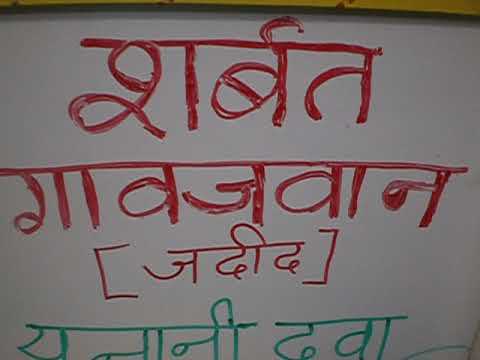 शर्बत
गावजवान
[जदीद]
यूनानी दवा